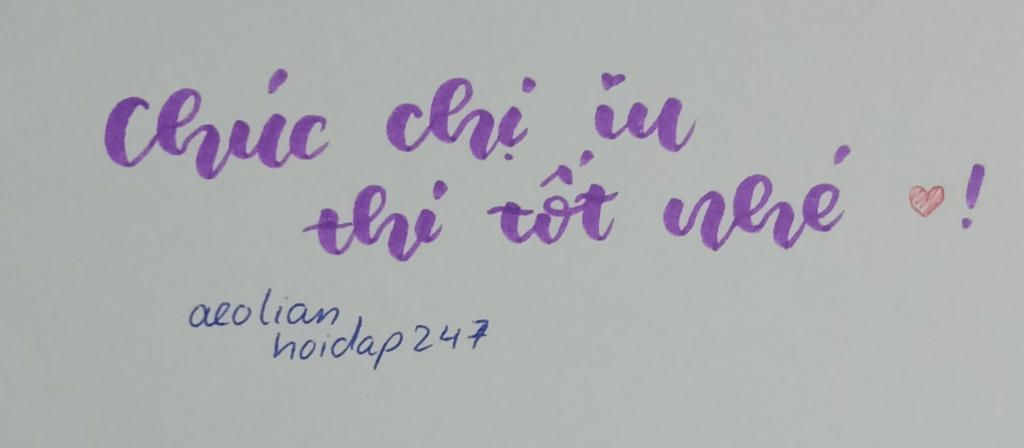 Chúc chị iu
thi tốt nhé ♥!
aeolian
hoidap247